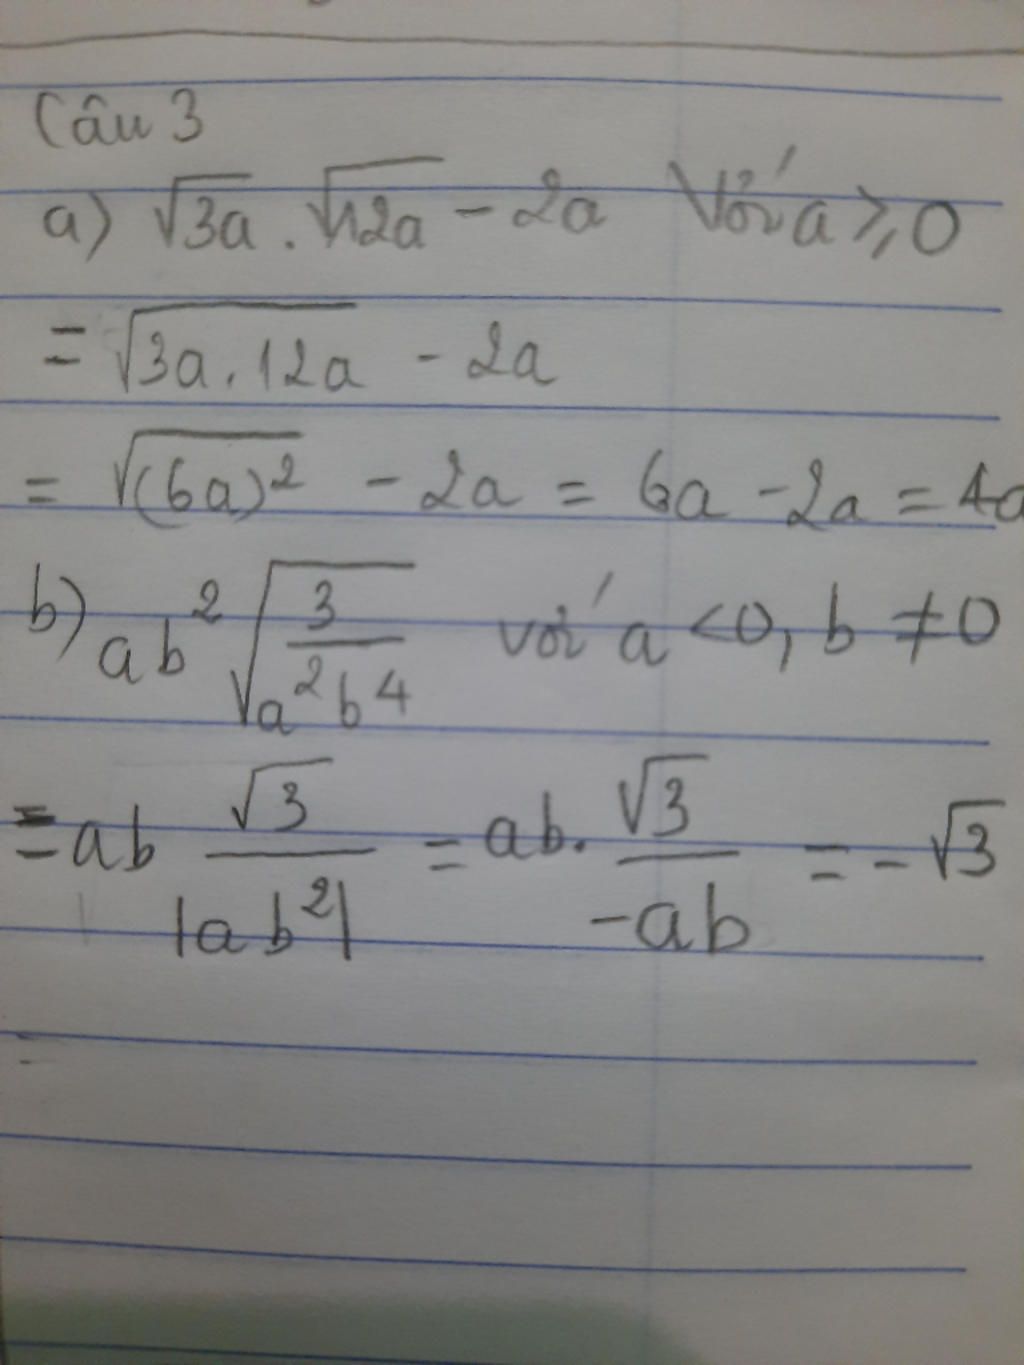 Câu 3
a) √3a . √12a - 2a Với a ≥ 0
= √3a . 12a - 2a
= √(6a)² - 2a = 6a - 2a = 4a
b) ab² √(3/a²b⁴) với a < 0, b ≠ 0
= ab √3/|ab²| = ab. √3/-ab = - √3